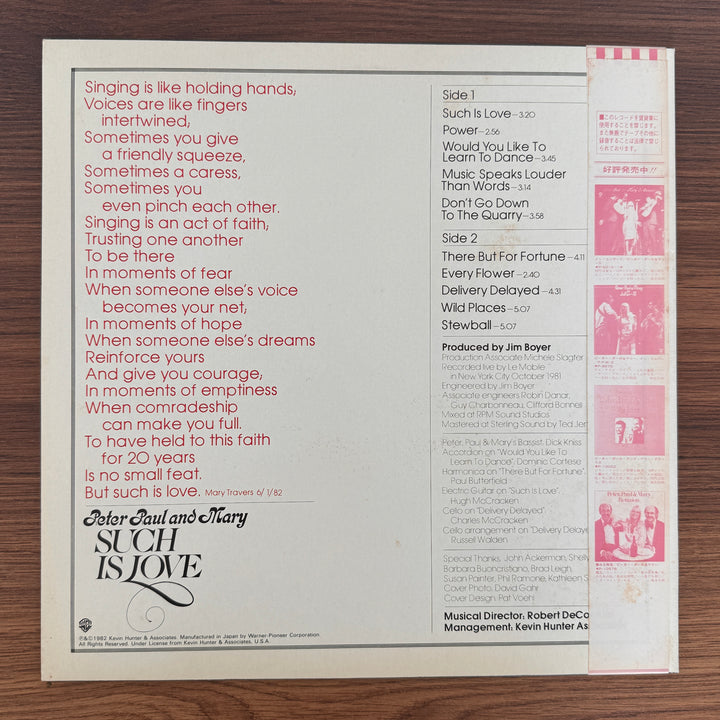 Singing is like holding hands;
Voices are like fingers
intertwined;
Sometimes you give
a friendly squeeze,
Sometimes a caress,
Sometimes you
even pinch each other.
Singing is an act of faith;
Trusting one another
To be there
In moments of fear
When someone else's voice
becomes your net;
In moments of hope
When someone else's dreams
Reinforce yours
And give you courage,
In moments of emptiness
When comradeship
can make you full.
To have held to this faith
for 20 years
Is no small feat.
But such is love. Mary Travers 6/1/82
Peter Paul and Mary
SUCH
IS LOVE
℗&©1982 Kevin Hunter & Associates. Manufactured in Japan by Warner-Pioneer Corporation.
All Rights Reserved. Under License from Kevin Hunter & Associates. U.S.A.
Side 1
Such Is Love–3.20
Power–2.56
Would You Like To
Learn To Dance–3.45
Music Speaks Louder
Than Words–3.14
Don't Go Down
To The Quarry–3.58
Side 2
There But For Fortune–4.11
Every Flower–2.40
Delivery Delayed–4.31
Wild Places–5.07
Stewball–5.07
Produced by Jim Boyer
Production Associate Michele Slagter
Recorded live by Le Mobile
in New York City October 1981
Engineered by Jim Boyer
Associate engineers Robin Danar,
Guy Charbonneau, Clifford Bonnell
Mixed at RPM Sound Studios
Mastered at Sterling Sound by Ted Jen
Peter, Paul & Mary's Bassist, Dick Kniss
Accordion on "Would You Like To
Learn To Dance", Dominic Cortese
Harmonica on "There But For Fortune",
Paul Butterfield
Electric Guitar on "Such is Love",
Hugh McCracken
Cello on "Delivery Delayed"
Charles McCracken
Cello arrangement on "Delivery Delaye
Russell Walden
Special Thanks, John Ackerman, Shelly
Barbara Buoncristiano, Brad Leigh,
Susan Painter, Phil Ramone, Kathleen S
Cover Photo, David Gahr
Cover Design, Pat Voehl
Musical Director: Robert DeCo
Management: Kevin Hunter As
■このレコードを賃貸業に
使用することを禁じます。
また無断でテープその他に
録音することは法律で禁じ
られております。
好評発売中!!
Peter, Paul & Mary
Reunion